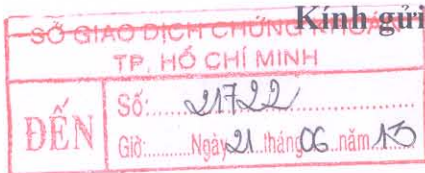 Kính gửi
SỞ GIAO DỊCH CHỨNG KHOÁN
TP. HỒ CHÍ MINH
ĐẾN
Số: 21722
Giờ: Ngày 21 tháng 06 năm 13